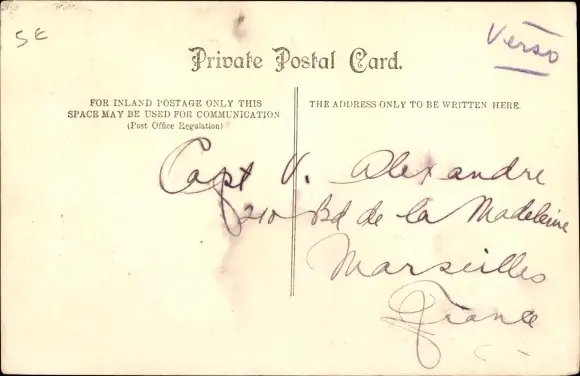 5E
Verso
Private Postal Card.
FOR INLAND POSTAGE ONLY THIS
SPACE MAY BE USED FOR COMMUNICATION
(Post Office Regulation)
THE ADDRESS ONLY TO BE WRITTEN HERE
Capt V. Alexandre
210 Bd de la Madeleine
Marseilles
France